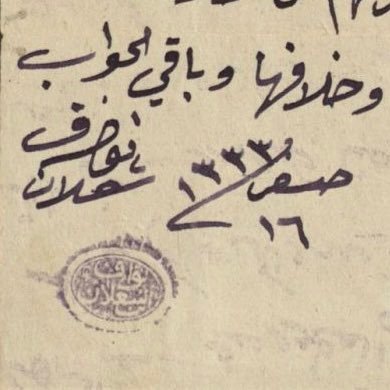 وخلافها وباقي الجواب
١٦ صفر ١٣٣٣
نواف
شعلان